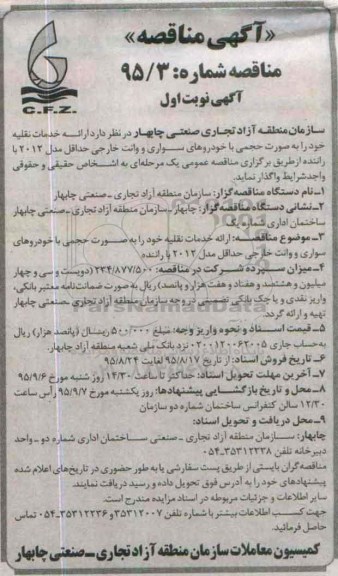 «آگهی مناقصه»
مناقصه شماره: ۹۵/۳
آگهی نوبت اول
C.F.Z.
سازمان منطقه آزاد تجاری صنعتی چابهار در نظر دارد ارائه خدمات نقلیه
خود را به صورت حجمی با خودروهای سواری و وانت خارجی حداقل مدل ۲۰۱۲ با
راننده از طریق برگزاری مناقصه عمومی یک مرحله‌ای به اشخاص حقیقی و حقوقی
واجد شرایط واگذار نماید.
۱-نام دستگاه مناقصه گزار: سازمان منطقه آزاد تجاری - صنعتی چابهار
۲-نشانی دستگاه مناقصه گزار: چابهار - سازمان منطقه آزاد تجاری - صنعتی چابهار
ساختمان اداری شماره یک
۳-موضوع مناقصه: ارائه خدمات نقلیه خود را به صورت حجمی با خودروهای
سواری و وانت خارجی حداقل مدل ۲۰۱۲ با راننده
۴-میزان سپرده شرکت در مناقصه: ۲۳۴/۸۷۷/۵۰۰ (دویست و سی و چهار
میلیون و هشتصد و هفتاد و هفت هزار و پانصد) ریال به صورت ضمانت‌نامه معتبر بانکی،
واریز نقدی و یا چک بانکی تضمینی در وجه سازمان منطقه آزاد تجاری - صنعتی چابهار
تهیه و ارائه گردد.
ParsNamadData
۵-قیمت اسناد و نحوه واریز وجه: مبلغ ۵۰۰/۰۰۰ ریال (پانصد هزار) ریال
به حساب جاری نزد بانک ملی شعبه منطقه آزاد چابهار.
۶-تاریخ فروش اسناد: از تاریخ ۹۵/۸/۱۷ لغایت ۹۵/۸/۲۴
۷-آخرین مهلت تحویل اسناد: حداکثر تا ساعت ۱۴/۳۰ روز شنبه مورخ ۹۵/۹/۶
۸-محل و تاریخ بازگشایی پیشنهادها: روز یکشنبه مورخ ۹۵/۹/۷ رأس ساعت
۱۲/۳۰ سالن کنفرانس ساختمان شماره دو سازمان
۹-محل دریافت و تحویل اسناد:
چابهار: سازمان منطقه آزاد تجاری - صنعتی ساختمان اداری شماره دو - واحد
دبیرخانه تلفن ۳۵۳۱۲۳۳۸-۰۵۴
مناقصه گران بایستی از طریق پست سفارشی یا به طور حضوری در تاریخ‌های اعلام شده
پیشنهادهای خود را به آدرس فوق تحویل داده و رسید دریافت نمایند.
سایر اطلاعات و جزئیات مربوطه در اسناد مزایده مندرج است.
جهت کسب اطلاعات بیشتر با شماره تلفن ۳۵۳۱۲۰۰۷ و ۳۵۳۱۲۲۳۶-۰۵۴ تماس
حاصل فرمائید.
کمیسیون معاملات سازمان منطقه آزاد تجاری - صنعتی چابهار